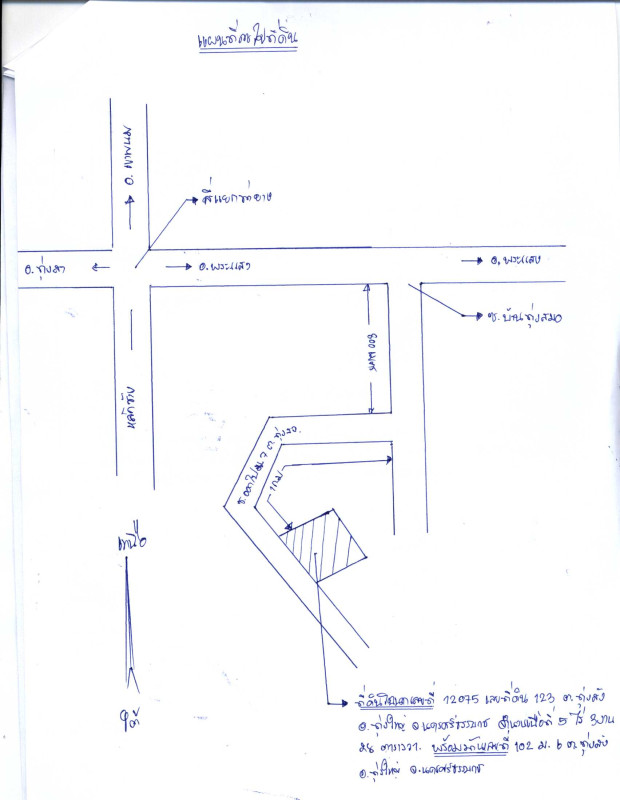 แผนที่ไปที่ดิน
อ. เขาพนม
สี่แยก
อ. ทุ่งสง
อ. พระแสง
อ. พระแสง
ซ. บ้านทุ่งสมอ
800 เมตร
หลักช้าง
ม. 7 ต. ทุ่งสัง
1 กม.
เหนือ
ใต้
ที่ดินโฉนดเลขที่ 12075 เลขที่ดิน 123 ต. ทุ่งสัง
อ. ทุ่งใหญ่ จ. นครศรีธรรมราช จำนวนเนื้อที่ 5 ไร่ 3 งาน
ตารางวา. พร้อมบ้านเลขที่ 102 ม. 6 ต. ทุ่งสัง
อ. ทุ่งใหญ่ จ. นครศรีธรรมราช